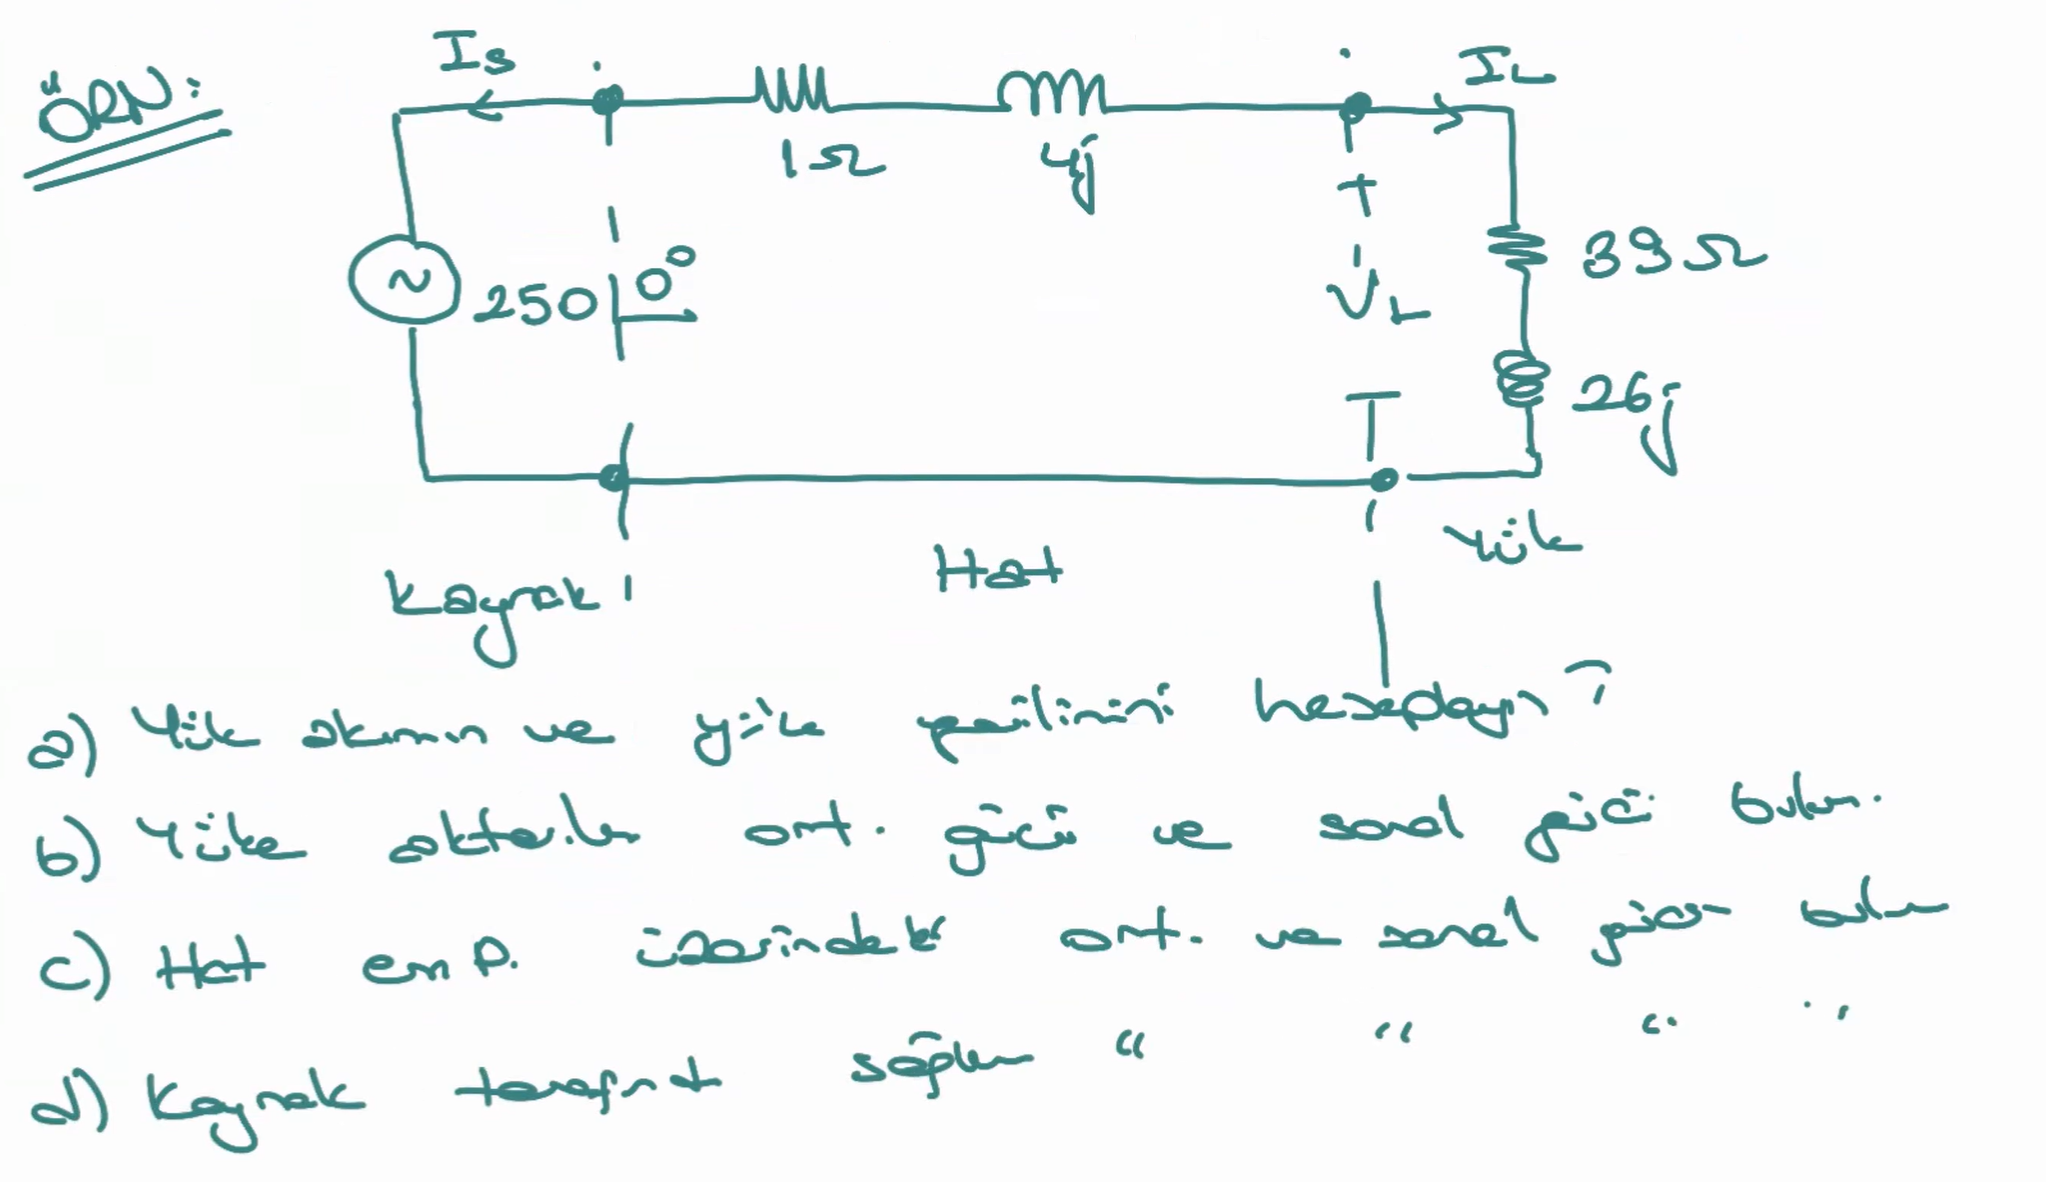 ÖRN:
Is
IL
1Ω
4j
+
VL
39Ω
26j
250∠0°
Kaynak
Hat
Yük
a) Yük akımın ve yük gerilimini hesaplayın?
b) Yüke aktarılan ort. gücü ve sanal gücü bulun.
c) Hat emp. üzerindeki ort. ve sanal gücü bulun
d) Kaynak tarafından sağlanan " " " "